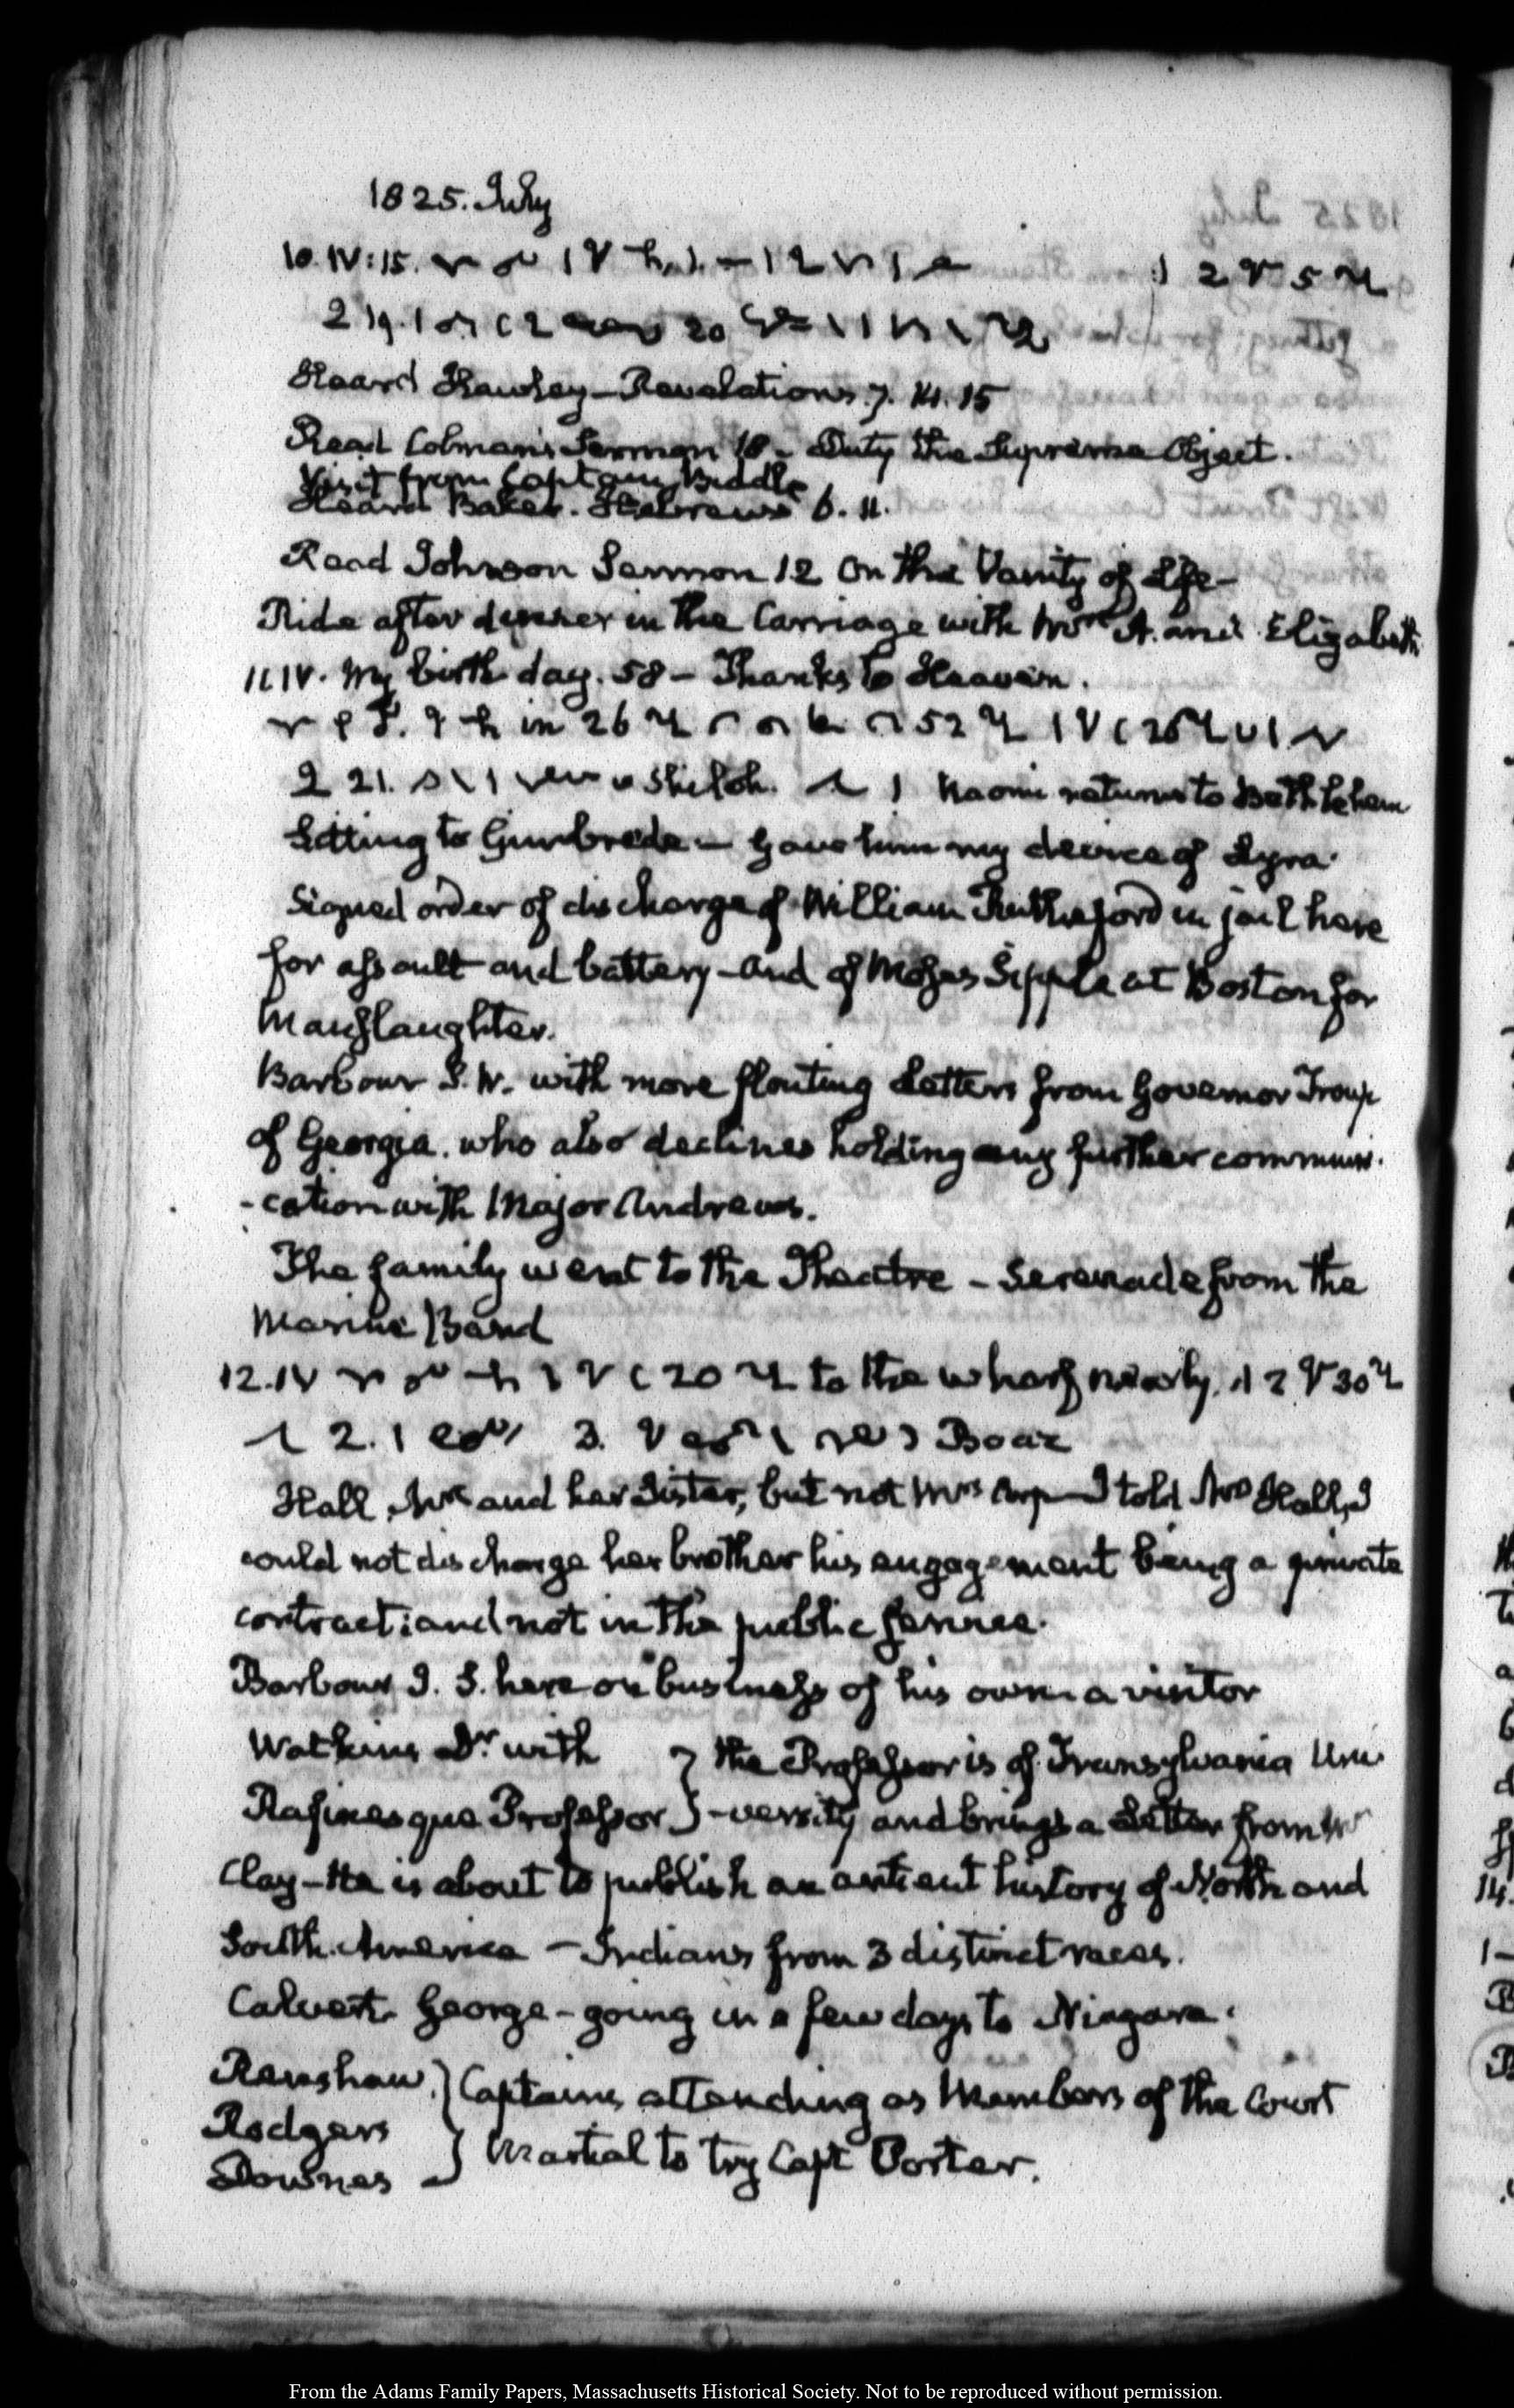 1825. July
10. IV:15.
2 19. 20
Heard Hawley – Revelations 7. 14.15
Read Colman's Sermon 18 – Duty the Supreme Object.
Visit from Captain Biddle
Heard Baker. Hebrews 6. 11.
Read Johnson Sermon 12 On the Vanity of Life –
Ride after dinner in the Carriage with Mrs A. and Elizabeth
11. IV. My birth day. 58 – Thanks to Heaven.
in 26 52
2 21. Shiloh. 1 Naomi returns to Bethlehem
Sitting to Gimbrede – gave him my device of Lyra.
Signed order of discharge of William Rutherford in jail here
for assault and battery – and of Moses Sipple at Boston for
Manslaughter.
Barbour S. W. with more flouting Letters from Governor Troup
of Georgia. who also declines holding any further communi-
-cation with Major Andrews.
The family went to the Theatre – Serenade from the
Marine Band
12. IV 20 to the wharf nearly. 30
2. 3. Boaz
Hall, Mrs and her Sister, but not Mrs I told Mrs Hall, I
could not discharge her brother his engagement being a private
contract; and not in the public service.
Barbour J. S. here on business of his own a visitor
Watkins Dr. with } the Professor is of Transylvania Uni
Rafinesque Professor } -versity and brings a Letter from Mr
Clay – He is about to publish an antient history of North and
South America – Indians from 3 distinct races.
Calvert George – going in a few days to Niagara.
Renshaw. } Captains attending as Members of the Court
Rodgers
Downes } Martial to try Capt Porter.
From the Adams Family Papers, Massachusetts Historical Society. Not to be reproduced without permission.